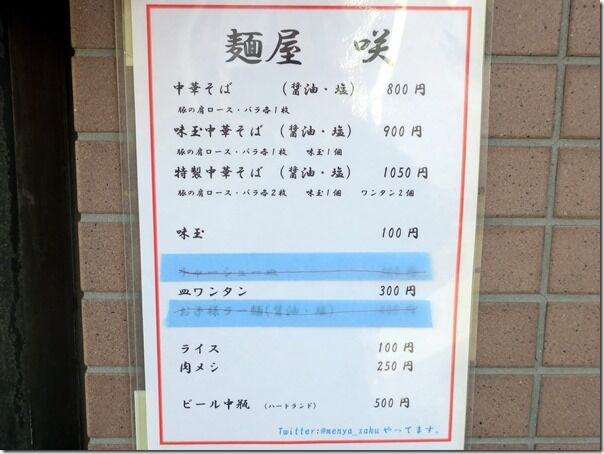 麺屋 咲
中華そば (醤油・塩) 800円
豚の肩ロース・バラ各1枚
味玉中華そば (醤油・塩) 900円
豚の肩ロース・バラ各1枚 味玉1個
特製中華そば (醤油・塩) 1050円
豚の肩ロース・バラ各2枚 味玉1個 ワンタン2個
味玉 100円
チャーシュー
皿ワンタン 300円
お子様ラー麺(醤油・塩)
ライス 100円
肉メシ 250円
ビール中瓶 (ハートランド) 500円
Twitter:@menya_sakuやってます。